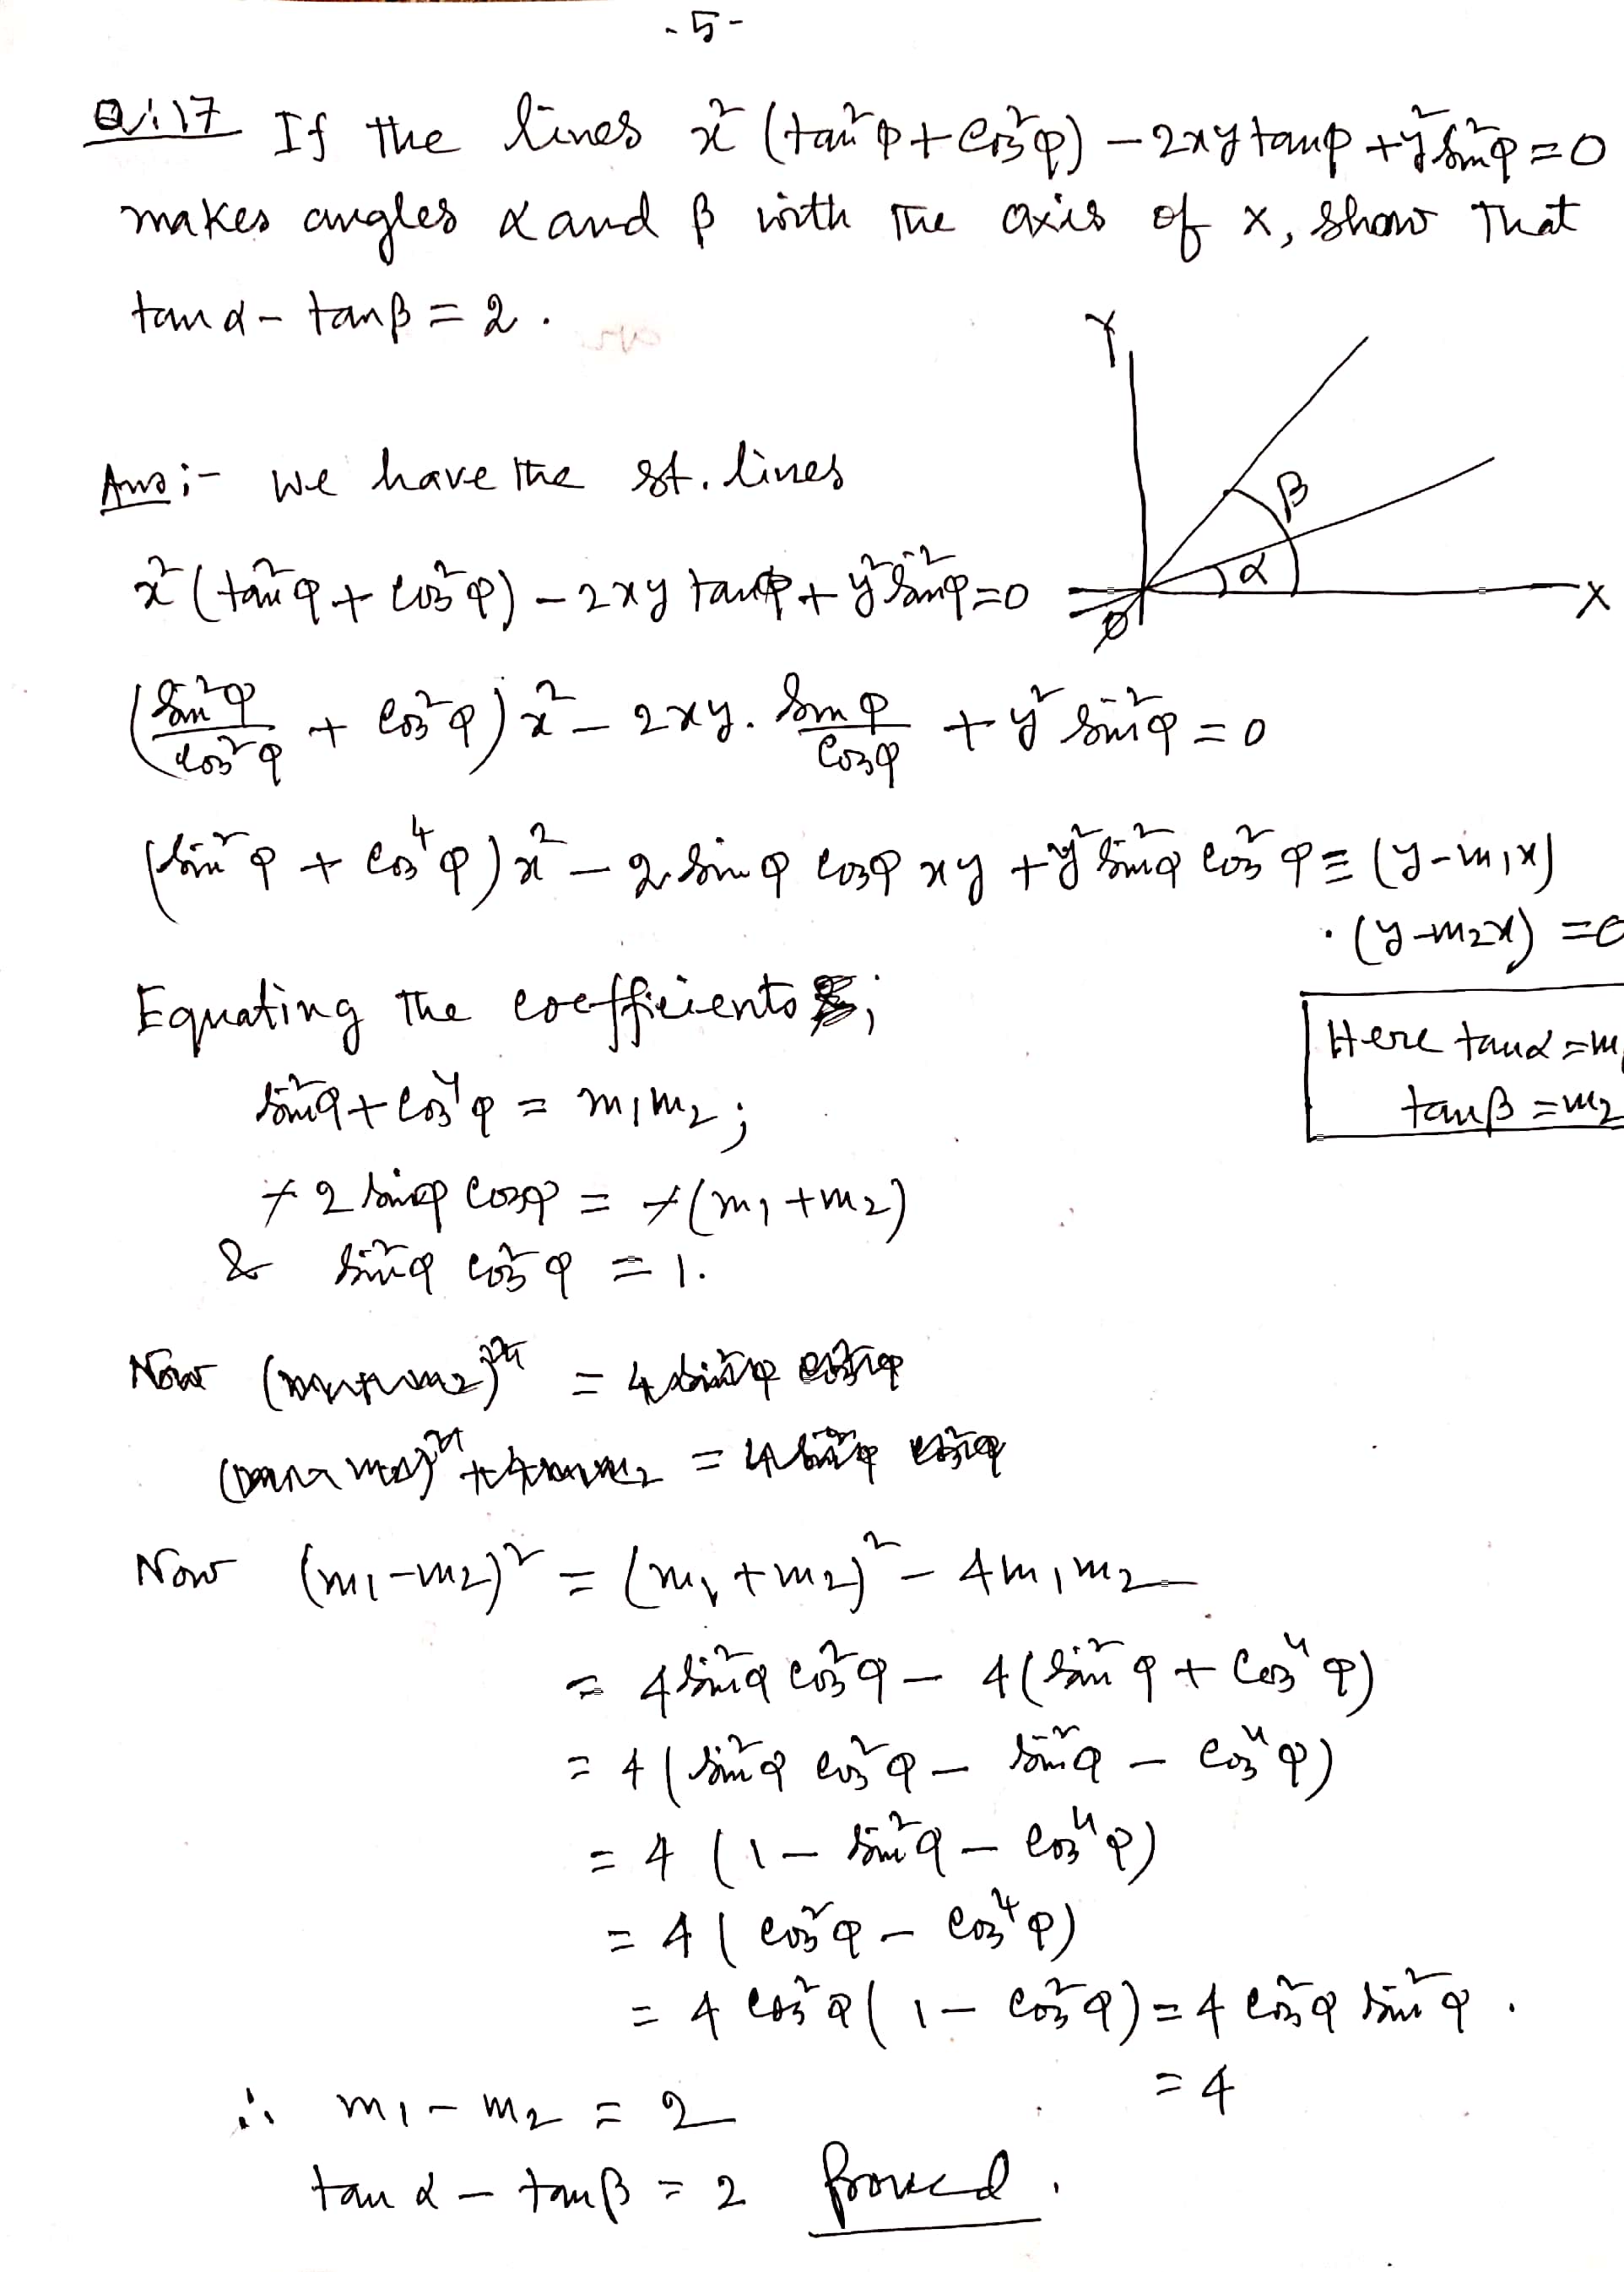 -5-
Q.17 If the lines x² (tan²φ + cos²φ) - 2xy tanφ + y² sin²φ = 0
makes angles α and β with the axis of x, show that
tan α - tan β = 2.
Y
Ans:- we have the st. lines
β
α
x² (tan²φ + cos²φ) - 2xy tanφ + y² sin²φ = 0
X
O
(sin²φ/cos²φ + cos²φ) x² - 2xy. sinφ/cosφ + y² sin²φ = 0
(sin²φ + cos⁴φ) x² - 2 sinφ cosφ xy + y² sin²φ cos²φ ≡ (y - m₁x)
. (y - m₂x) = 0
Equating the coefficients;
Here tan α = m₁
sin²φ + cos⁴φ = m₁m₂;
tan β = m₂
+ 2 sinφ cosφ = + (m₁ + m₂)
& sin²φ cos²φ = 1.
Now (m₁ + m₂)² = 4 sin²φ cos²φ
(m₁ - m₂)² + 4m₁m₂ = 4 sin²φ cos²φ
Now (m₁ - m₂)² = (m₁ + m₂)² - 4m₁m₂
= 4 sin²φ cos²φ - 4 (sin²φ + cos⁴φ)
= 4 (sin²φ cos²φ - sin²φ - cos⁴φ)
= 4 (1 - sin²φ - cos⁴φ)
= 4 (cos²φ - cos⁴φ)
= 4 cos²φ (1 - cos²φ) = 4 cos²φ sin²φ.
= 4
∴ m₁ - m₂ = 2
tan α - tan β = 2 Proved.